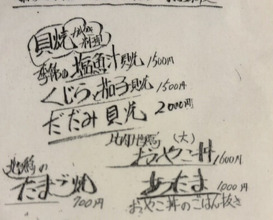 貝焼
季節の塩魚汁貝焼 1500円
くじら茄子貝焼 1500円
だだみ貝焼 2000円
比内地鶏
(大)
おやこ丼 1600円
比内地鶏の
たまご焼 700円
あたま 1000円
おやこ丼のごはん抜き